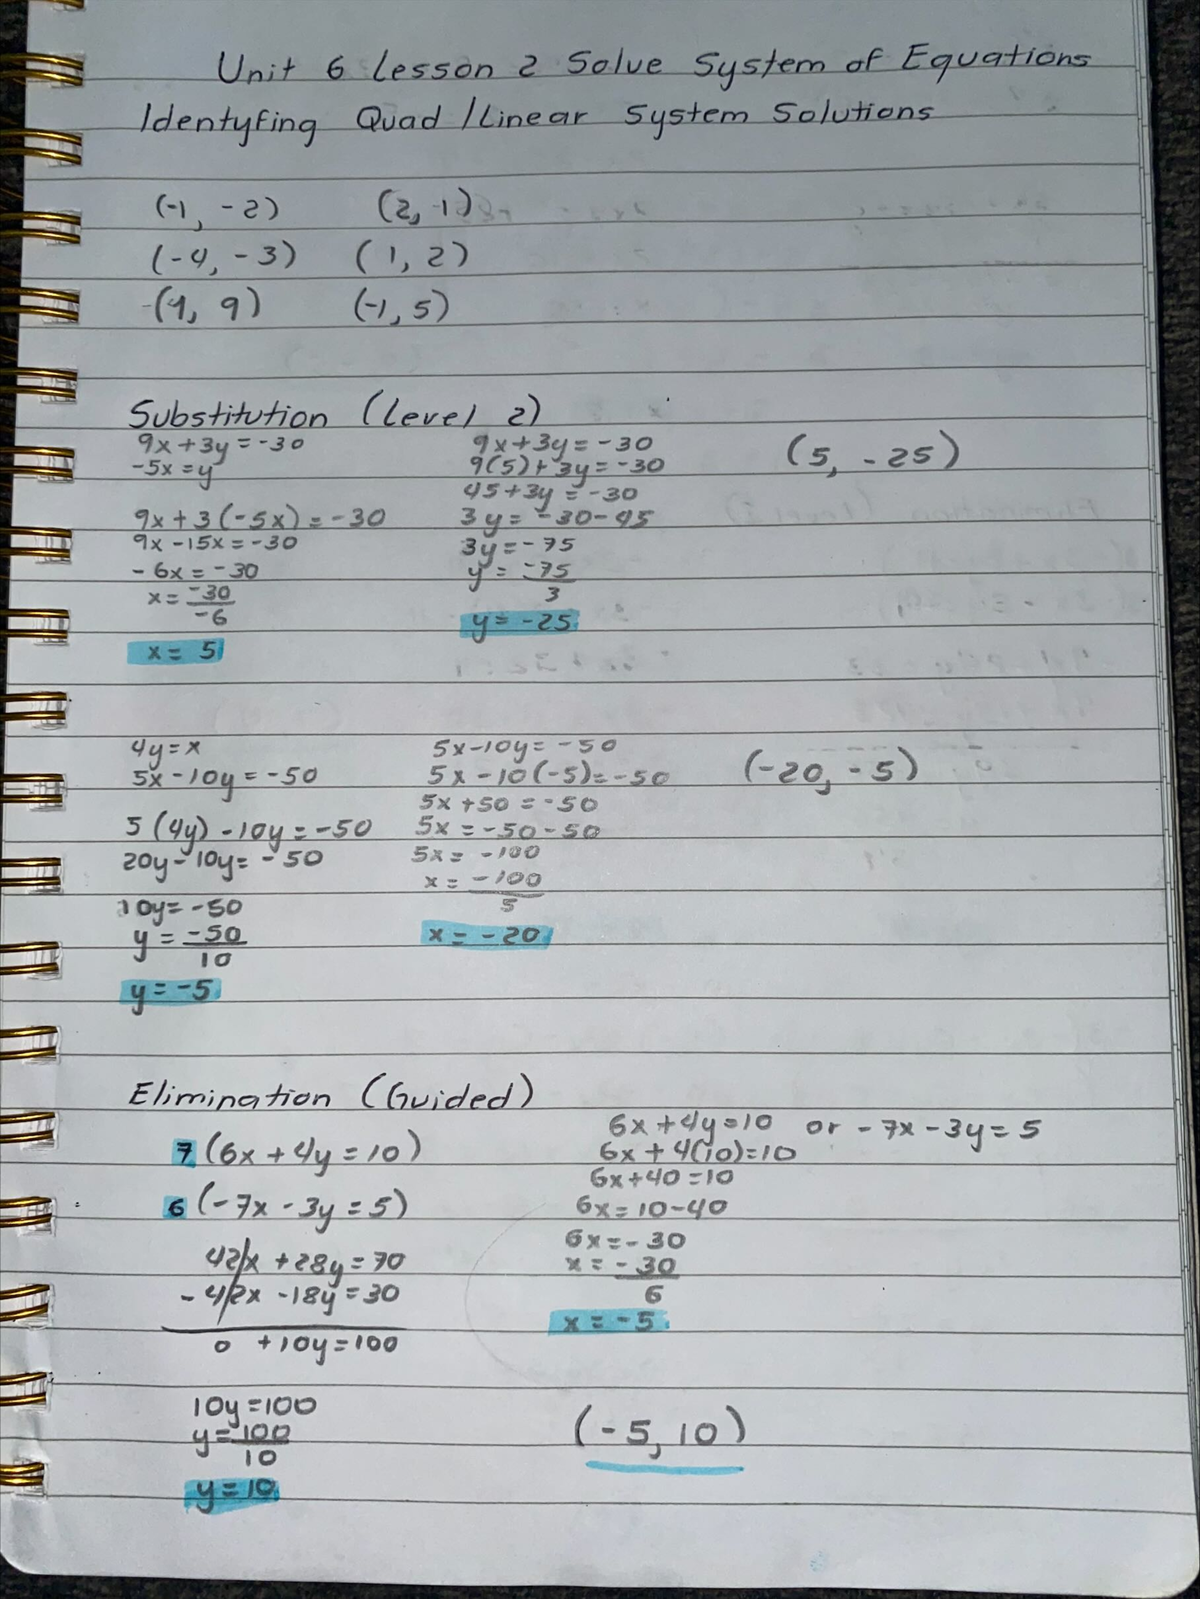 Unit 6 Lesson 2 Solve System of Equations
Identyfing Quad/Linear System Solutions
(-1, -2) (2, -1)
(-4, -3) (1, 2)
(4, 9) (-1, 5)
Substitution (Level 2)
9x+3y=-30
-5x=y
9x+3(-5x)=-30
9x-15x=-30
-6x=-30
x=-30/-6
x=5
9x+3y=-30
9(5)+3y=-30
45+3y=-30
3y=-30-45
3y=-75
y=-75/3
y=-25
(5, -25)
4y=x
5x-10y=-50
5(4y)-10y=-50
20y-10y=-50
10y=-50
y=-50/10
y=-5
5x-10y=-50
5x-10(-5)=-50
5x+50=-50
5x=-50-50
5x=-100
x=-100/5
x=-20
(-20, -5)
Elimination (Guided)
7(6x+4y=10)
6(-7x-3y=5)
42x+28y=70
-42x-18y=30
0 +10y=100
10y=100
y=100/10
y=10
6x+4y=10 or -7x-3y=5
6x+4(10)=10
6x+40=10
6x=10-40
6x=-30
x=-30/6
x=-5
(-5, 10)